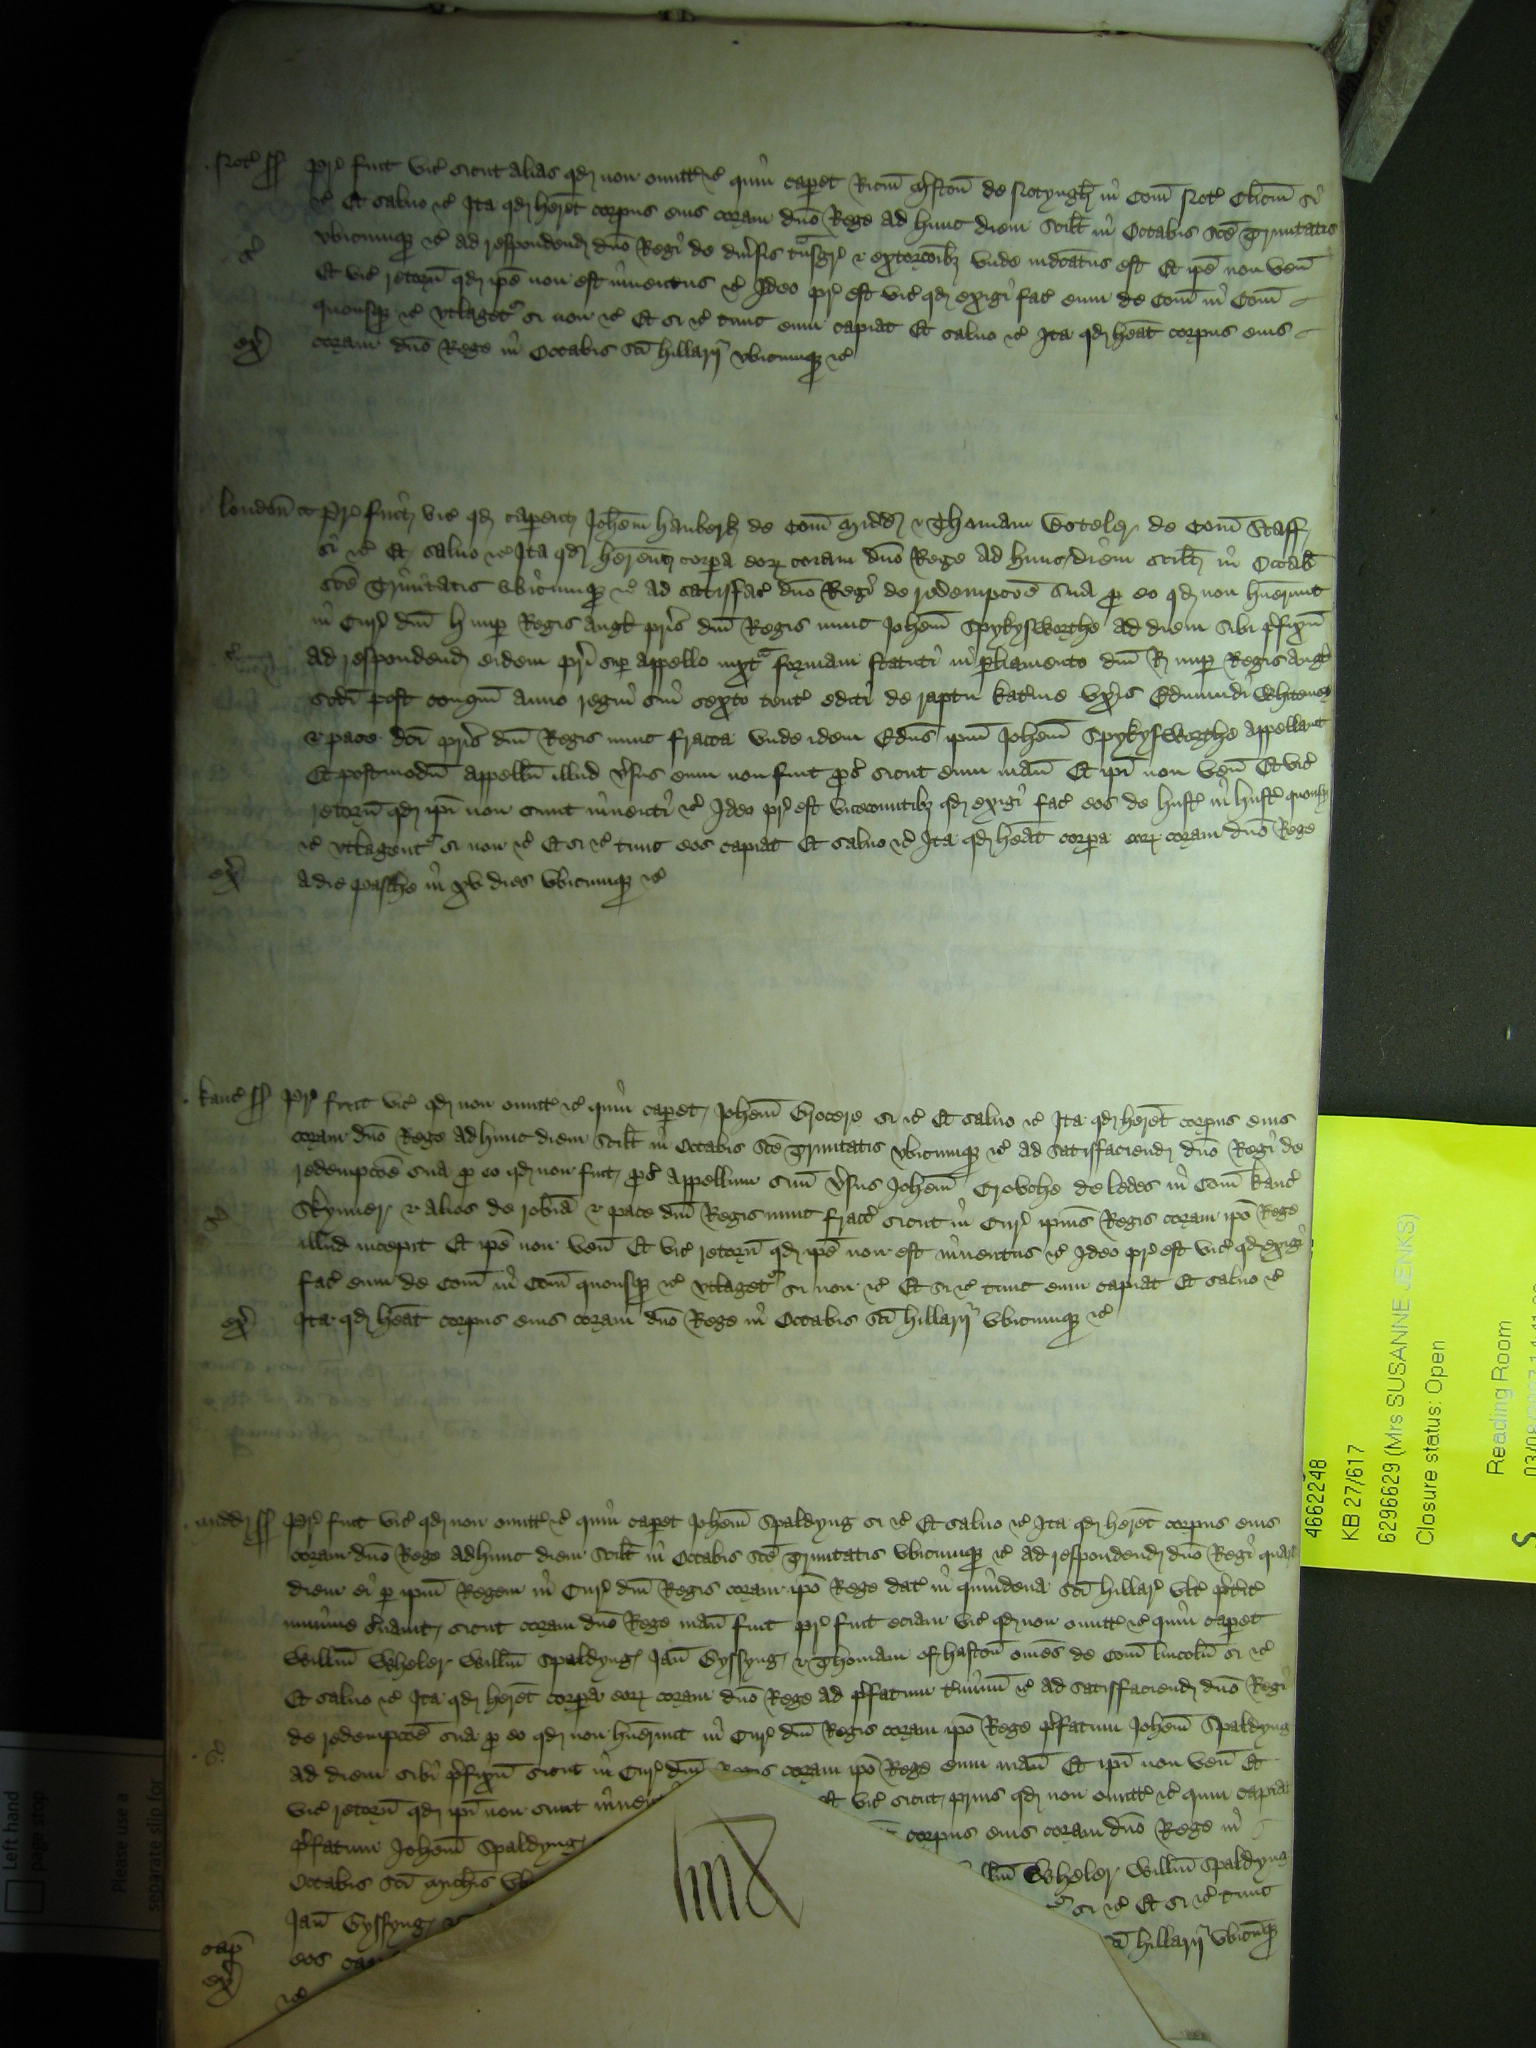 Not' ss Pre' fuit vic' sicut alias qd' non omitt' &c' quin caperet Ricm de Notyngh'm in Com' Not' Clicum si
&c' Et salvo &c' Ita qd' heret corpus eius coram dno Rege ad hunc diem scilt in Octabis Sce Trinitatis
ubicumq' &c' ad respondend' dno Regi de divsis tnsgr' & extorcoib' unde indictatus est Et ipe non ven'
Et vic' retorn' qd' ipe non est inventus &c' Ideo pr' est vic' qd' exigi fac' eum de Com' in Com'
quousq' &c' utlaget' si non &c' Et si &c' tunc eum capiat Et salvo &c' Ita qd' heat corpus eius
ex' coram dno Rege in Octabis Sci Hillarii ubicumq' &c'
London' ss Pre' fuit vic' qd' caperent Johem Hauberk de Com' Midd' & Thomam Boteler de Com' Staff'
si &c' Et salvo &c' Ita qd' herent corpa eor' coram dno Rege ad hunc diem scilt in Octab'
Sce Trinitatis ubicumq' &c' ad satisfac' dno Regi de redempcoe sua p eo qd' non huerunt
in Cur' dni H nup Regis Angl' pris dni Regis nunc Johem Spykysworthe ad diem sibi pfixu'
ad respondend' eidem pri sup appello iuxta formam statuti in pliamento dni R nup Regis Angl'
scdi post conqm anno regni sui sexto tent' editi de raptu Katine uxis Edmundi Whitene
& pace dci pris dni Regis nunc fracta unde idem Edus ipm Johem Spykysworthe appellavit
Et postmodum appellu' illud vsus eum non fuit ps' sicut eum man' Et ipi non ven' Et vic'
retorn' qd' ipi non sunt inventi &c' Ideo pr' est vicecomitib' qd' exigi fac' eos de hust' in hust' quousq'
&c' utlagent' si non &c' Et si &c' tunc eos capiat Et salvo &c' Ita qd' heat corpa eor' coram dno Rege
ex' a die Pasche in xv dies ubicumq' &c'
Kanc' ss Pre' fuit vic' qd' non omitt' &c' quin caperet Johem Grocere si &c' Et salvo &c' Ita qd' heret corpus eius
coram dno Rege ad hunc diem scilt in Octabis Sce Trinitatis ubicumq' &c' ad satisfaciend' dno Regi de
redempcoe sua p eo qd' non fuit ps' Appellum suu' vsus Johem Crovche de Ledes in Com' Kanc'
Skynner & alios de robia & pace dni Regis nunc fract' sicut in Cur' ipius Regis coram ipo Rege
illud incepit Et ipe non ven' Et vic' retorn' qd' ipe non est inventus &c' Ideo pr' est vic' qd' exigi
fac' eum de Com' in Com' quousq' &c' utlaget' si non &c' Et si &c' tunc eum capiat Et salvo &c'
ex' Ita qd' heat corpus eius coram dno Rege in Octabis Sci Hillarii ubicumq' &c'
Midd' ss Pre' fuit vic' qd' non omitt' &c' quin caperet Johem Spaldyng si &c' Et salvo &c' Ita qd' heret corpus eius
coram dno Rege ad hunc diem scilt in Octabis Sce Trinitatis ubicumq' &c' ad respondend' dno Regi quar'
diem ei p ipm Regem in Cur' dni Regis coram ipo Rege dat' in quindena Sci Hillar' ult' ptit'
minime svavit sicut coram dno Rege man' fuit pr' fuit eciam vic' qd' non omitt' &c' quin caperet
Willm Wheler Willm Spaldyng Jan' Gyffyng & Thomam of Haston' omes de Com' Lincoln' si &c'
Et salvo &c' Ita qd' heret corpa eor' coram dno Rege ad pfatum tminu' &c' ad satisfaciend' dno Regi
de redempcoe sua p eo qd' non huerunt in Cur' dni Regis coram ipo Rege pfatum Johem Spaldyng
ad diem sibi pfixu' sicut in Cur' dni Regis coram ipo Rege eum man' Et ipi non ven' Et
vic' retorn' qd' ipi non sunt et vic' sicut prius qd' non omitt' &c' quin capiat
pfatum Johem Spaldyng corpus eius coram dno Rege in
Octabis Sci Michis Wheler Willm Spaldyng
Jan' Gyffyng si &c' Et si &c' tunc
cap' eos Hillarii ubicumq'
ex' &c'
4662248
KB 27/617
6296629 (Mrs SUSANNE JENKS)
Closure status: Open
Reading Room
Left hand
page stop
Please use a
separate slip for